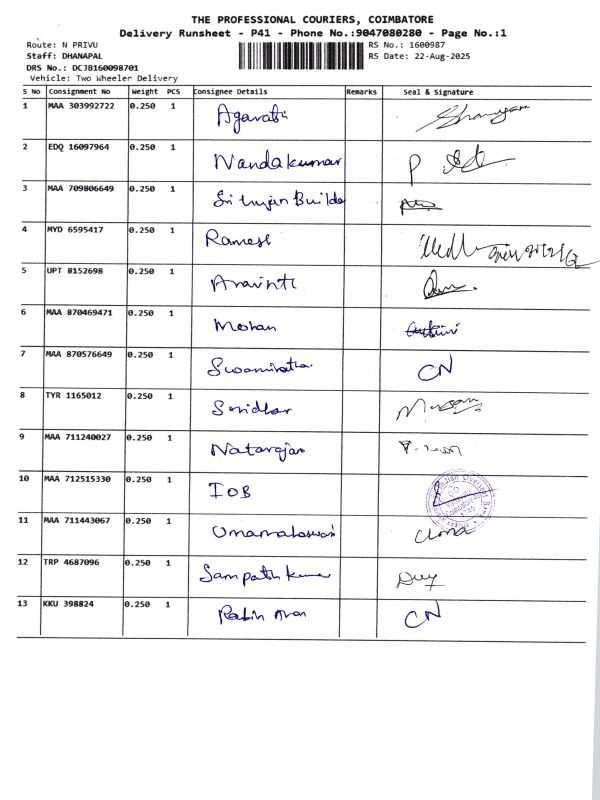 THE PROFESSIONAL COURIERS, COIMBATORE
Delivery Runsheet - P41 - Phone No.:9047080280 - Page No.:1
Route: N PRIVU
RS No.: 1600987
Staff: DHANAPAL
RS Date: 22-Aug-2025
DRS No.: DCJB160098701
Vehicle: Two Wheeler Delivery
S No Consignment No Weight PCS Consignee Details Remarks Seal & Signature
1 MAA 303992722 0.250 1
2 EDQ 16097964 0.250 1 Nandakumar
3 MAA 709806649 0.250 1 Builde
4 MYD 6595417 0.250 1 Ramesh
5 UPT 8152698 0.250 1
6 MAA 870469471 0.250 1 Mohan
7 MAA 870576649 0.250 1 CN
8 TYR 1165012 0.250 1 Sridhar
9 MAA 711240027 0.250 1 Natarajan
10 MAA 712515330 0.250 1 IOB
11 MAA 711443067 0.250 1 Uma
12 TRP 4687096 0.250 1 Sampath kumar
13 KKU 398824 0.250 1 CN